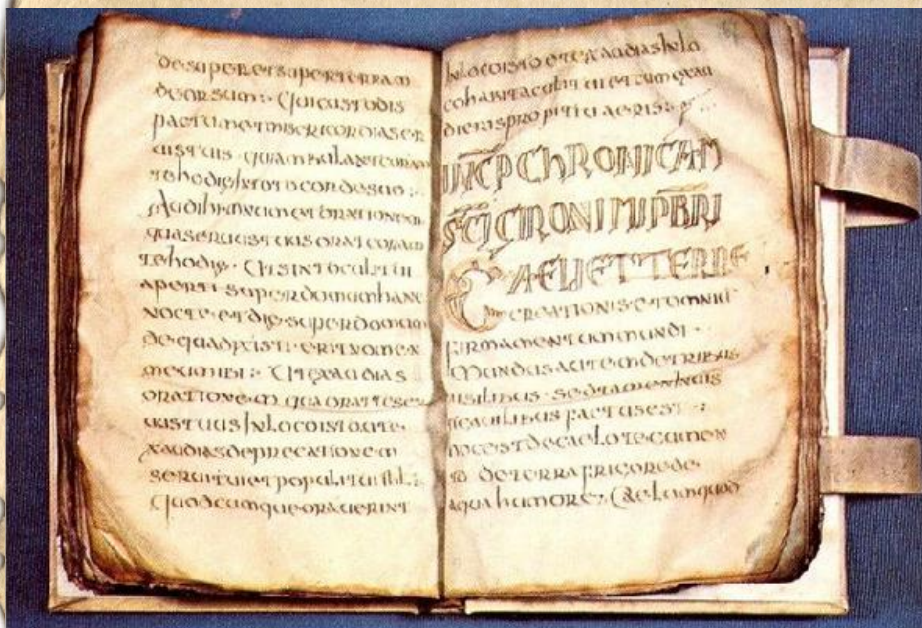 desuper et super terram
deorsum: Qui custodis
pactum et misericordias
tuis quiambulant coram
te hodie in toto corde suo:
Audi hymnum et orationem
qua seruus tuus orat coram
te hodie. Ut sint oculi tui
aperti super domum hanc
nocte et die super domum
de qua dixisti: erit nomen
meum ibi: Ut exaudias
orationem qua orat te ser
uus tuus in loco isto ut e
xaudias deprecationem
serui tui et populi tui isl:
Quodcumque orauerint
in loco isto et exaudias in lo
co habitaculi tui et cum exau
dieris propitiaueris:
INCP CHRONICAM
SCI GIRONIMI PBRI
CAELI ET TERRE
creationis et omniu
firmamentum mundi.
Mundus autem de tribus
sed tamen
factus est:
est de caelo
de terra frigore de
aqua humore; Caelum quod